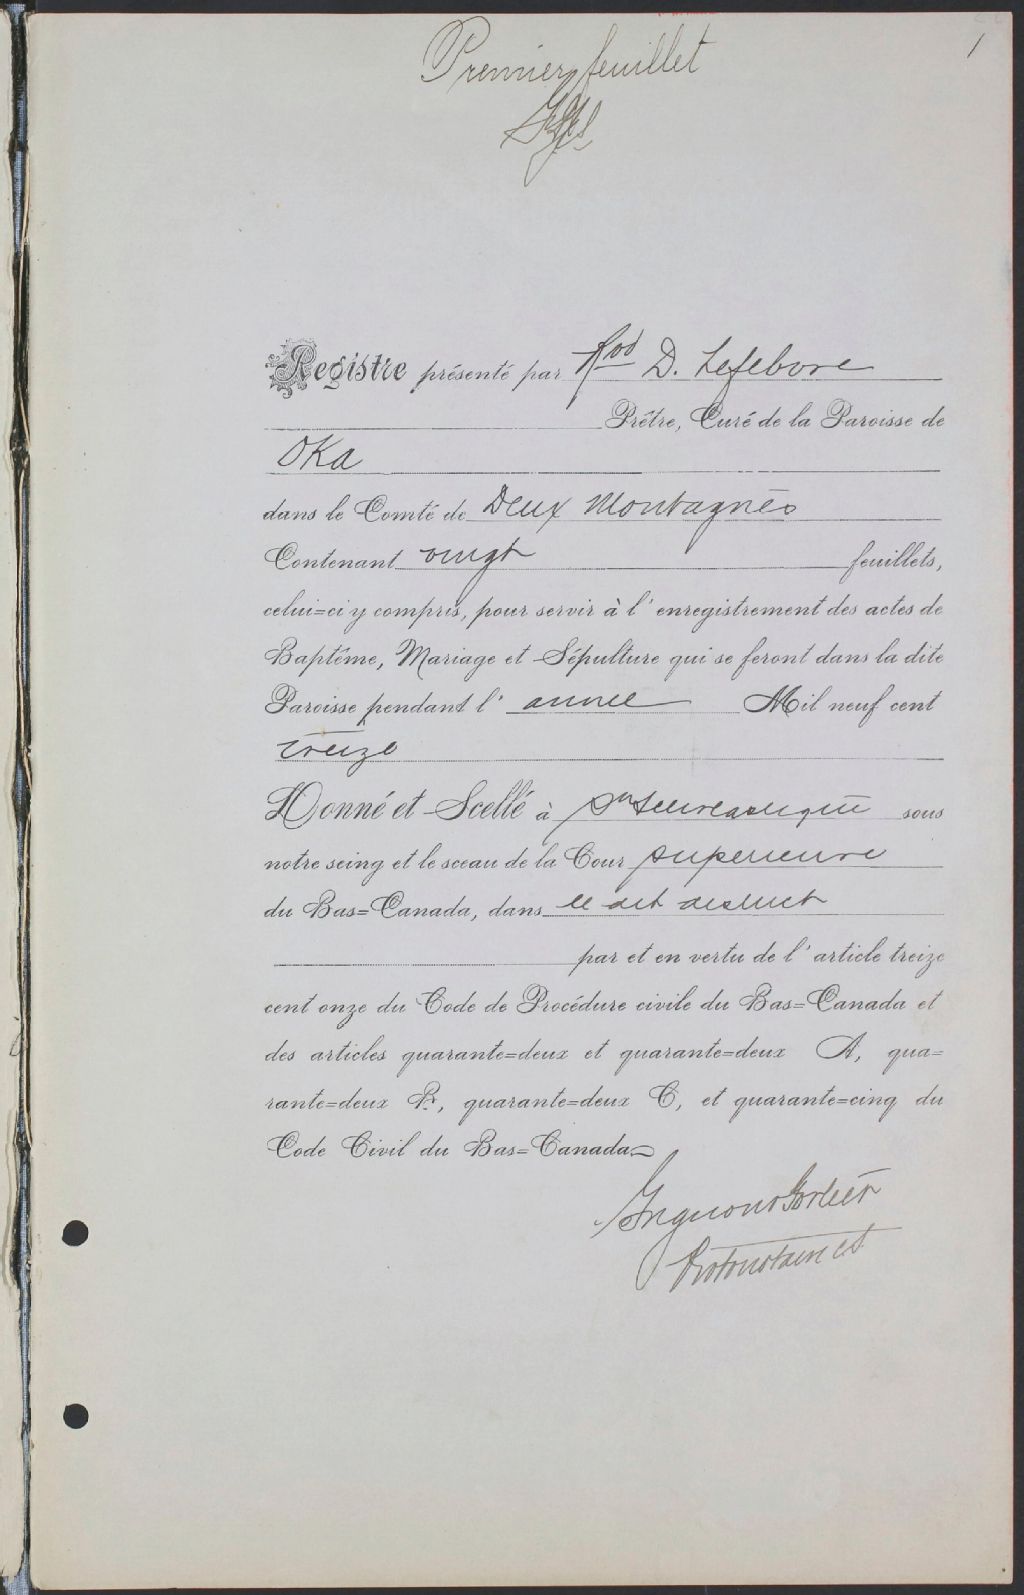 1
Premier feuillet
Registre présenté par Rvd D. Lefebvre
Prêtre, Curé de la Paroisse de
Oka
dans le Comté de Deux Montagnes
Contenant vingt feuillets,
celui=ci y compris, pour servir à l'enregistrement des actes de
Baptême, Mariage et Sépulture qui se feront dans la dite
Paroisse pendant l'année Mil neuf cent
treize
Donné et Scellé à Ste Scholastique sous
notre seing et le sceau de la Cour superieure
du Bas=Canada, dans le dit district
par et en vertu de l'article treize
cent onze du Code de Procédure civile du Bas=Canada et
des articles quarante=deux et quarante=deux A, qua=
rante=deux B, quarante=deux C, et quarante=cinq du
Code Civil du Bas=Canada